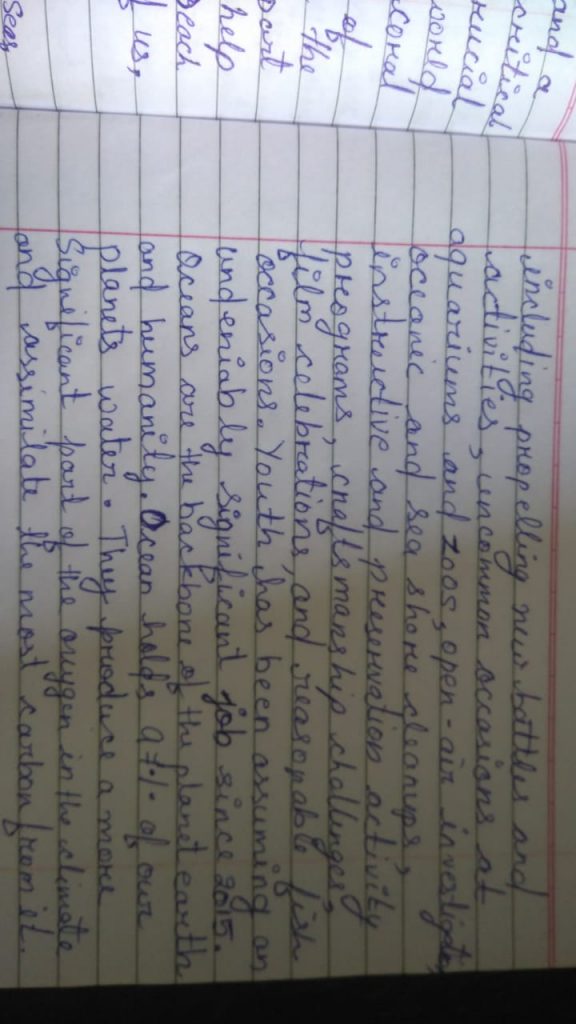 and a
critical
crucial
world
coral
of
the
part
help
each
us,
seas,
including propelling new battles and
activities, uncommon occasions at
aquariums and zoos, open-air investigates,
oceanic and sea shore cleanups,
instructive and preservation activity
programs, craftsmanship challenges,
film celebrations, and reasonable fish
occasions. Youth has been assuming an
undeniably significant job since 2015.
Oceans are the backbone of the planet earth
and humanity. Ocean holds 97% of our
planets water. They produce a more
Significant part of the oxygen in the climate
and assimilate the most carbon from it.